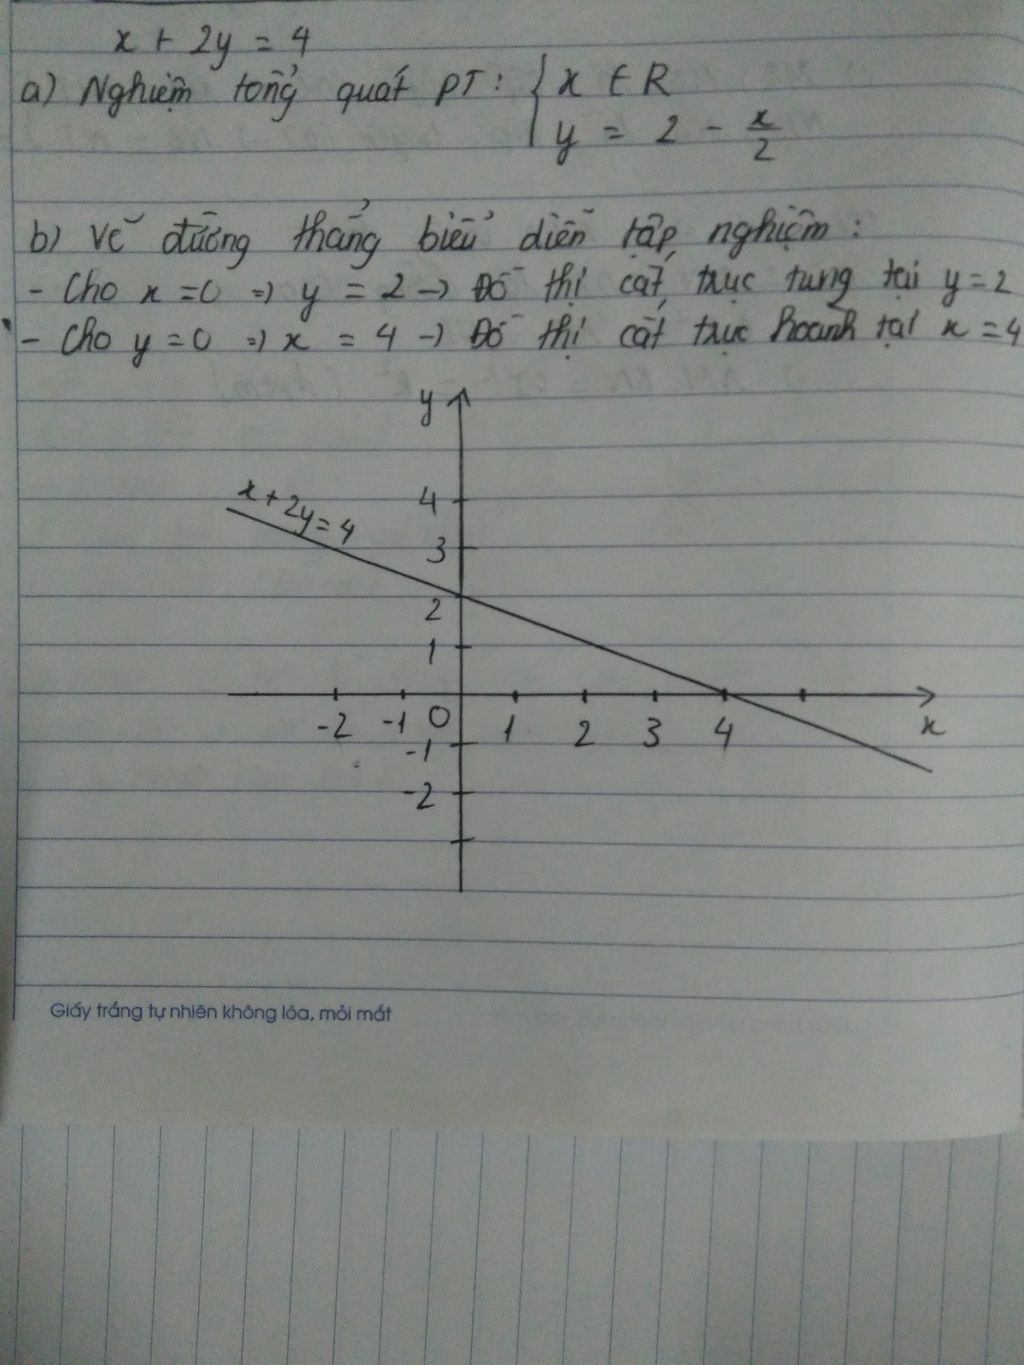 x + 2y = 4
a) Nghiệm tổng quát PT: { x ∈ R
y = 2 - x/2
b) Vẽ đường thẳng biểu diễn tập nghiệm:
- Cho x = 0 => y = 2 -> Đồ thị cắt trục tung tại y = 2
- Cho y = 0 => x = 4 -> Đồ thị cắt trục hoành tại x = 4
y
x + 2y = 4
4
3
2
1
-2 -1 0 1 2 3 4 x
-1
-2
Giấy trắng tự nhiên không lóa, mỏi mắt